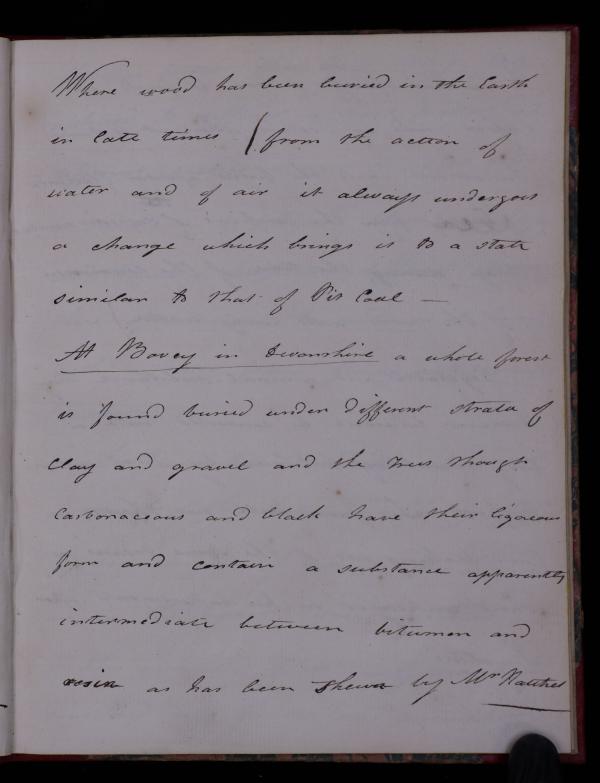 Where wood has been buried in the Earth
in late times / from the action of
water and of air it always undergoes
a change which brings it to a state
similar to that of Pit Coal —
At Bovey in Devonshire a whole forest
is found buried under different strata of
Clay and gravel and the trees though
Carbonaceous and black have their ligneous
form and contain a substance apparently
intermediate between bitumen and
resin as has been shewn by Mr Hatchet